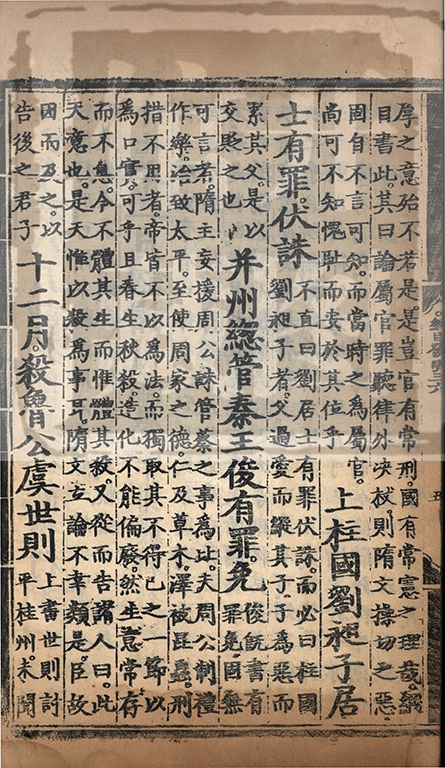 厚之意殆不若是是豈官有常刑國有常憲之理哉綱
目書此其曰論屬官罪聽律外决杖則隋文操切之惡
固自不言可知而當時之為屬官
尚可不知愧耻而安於其位乎
上柱國劉昶子居
士有罪伏誅
不直曰劉居士有罪伏誅而必曰柱國
劉昶子者父過愛而縱其子子為惡而
累其父是以
交貶之也
并州總管秦王俊有罪免
俊既書有
罪免固無
可言者隋主妄援周公誅管蔡之事為比夫周公制禮
作樂治致太平至使周家之德仁及草木澤被昆蟲刑
措不用者帝皆不以為法而獨取其不得已之一節以
為口實可乎且春生秋殺造化不能偏廢然生意常存
而不息今不體其生而惟體其殺又從而告諸人曰此
天意也是天惟以殺為事耳隋文立論不辜類是臣故
因而及之以
告後之君子
十二月殺魯公虞世則
上書世則討
平桂州未聞
五